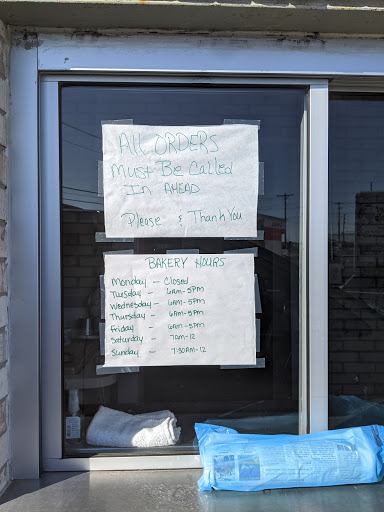 ALL ORDERS
Must Be Called
In AHEAD
Please & Thank You
BAKERY HOURS
Monday - Closed
Tuesday - 6AM-5PM
Wednesday - 6AM-5PM
Thursday - 6AM-5PM
Friday - 6AM-5PM
Saturday - 7AM-12
Sunday - 7:30AM-12